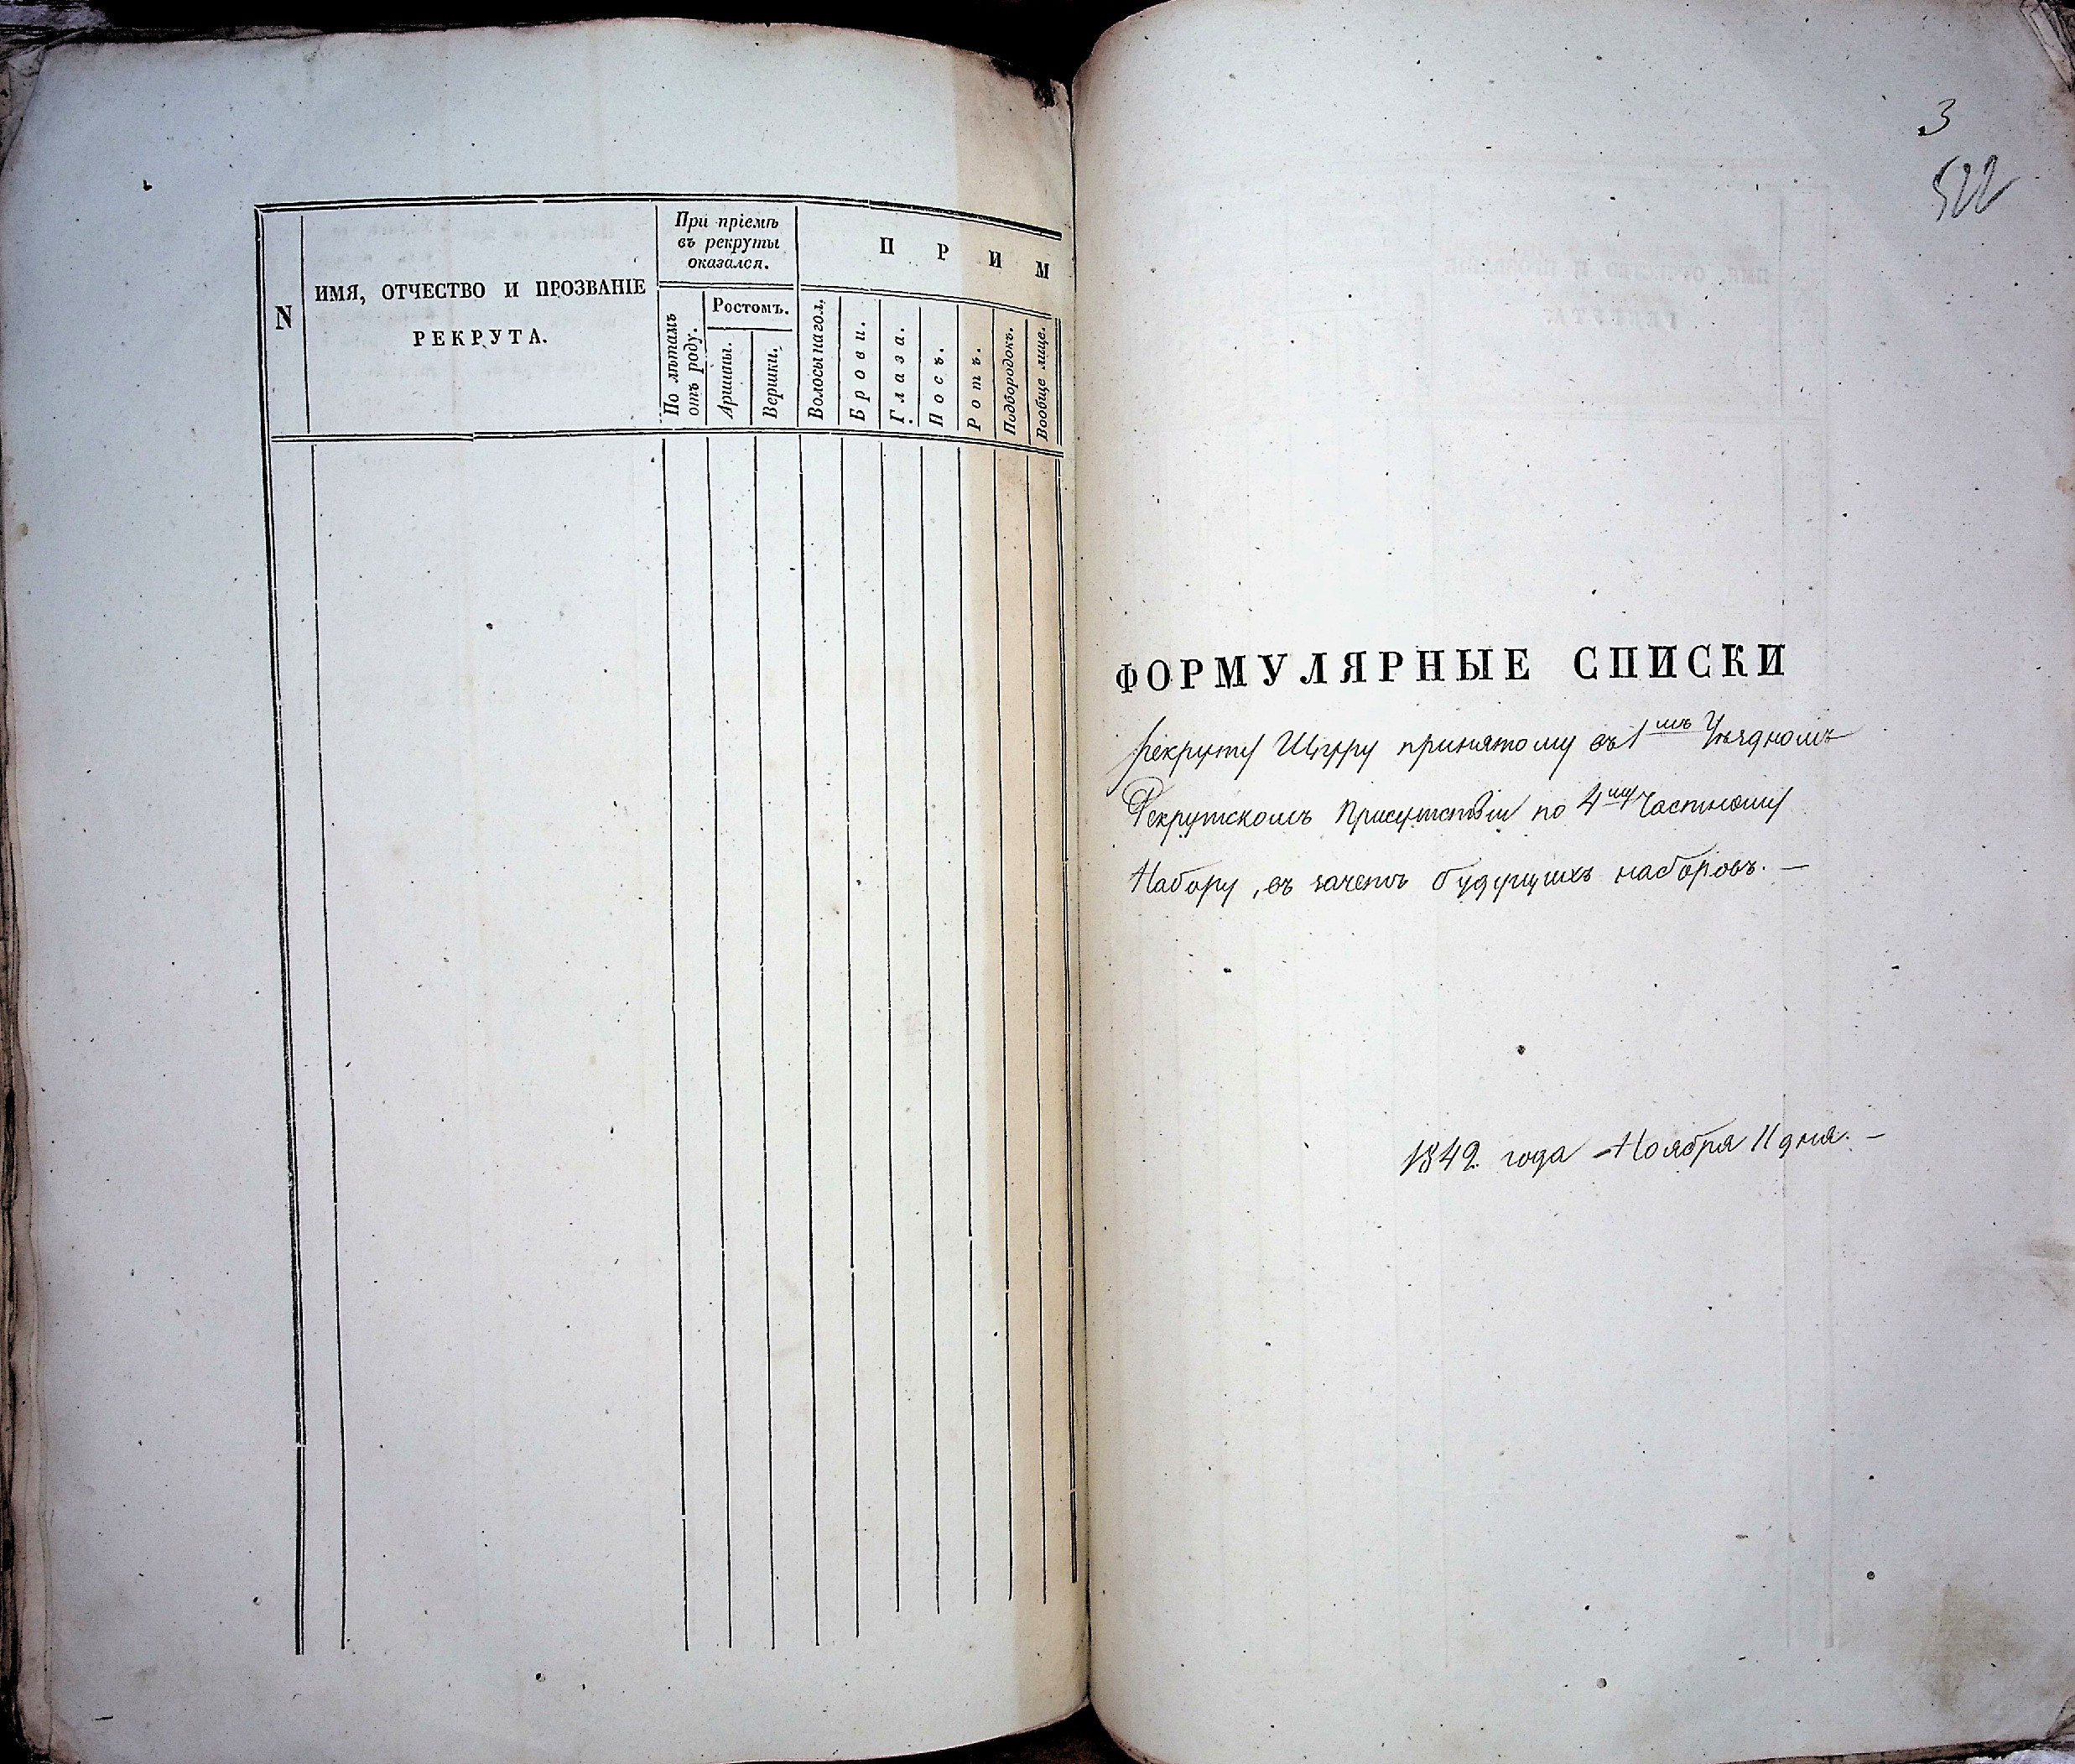 N
ИМЯ, ОТЧЕСТВО И ПРОЗВАНІЕ
РЕКРУТА.
При пріемѣ
въ рекруты
оказался.
По лѣтамъ
отъ роду.
Ростомъ.
Аршины.
Вершки.
П Р И М
Волосы на гол.
Брови.
Глаза.
Носъ.
Ротъ.
Подбородокъ.
Вообще лице.
3
522
ФОРМУЛЯРНЫЕ СПИСКИ
рекруту принятому въ 1мъ Уѣздномъ
Рекрутскомъ Присутствіи по 4му Частному
Набору, въ зачетъ будущихъ наборовъ. —
1842 года Ноября 11 дня. —